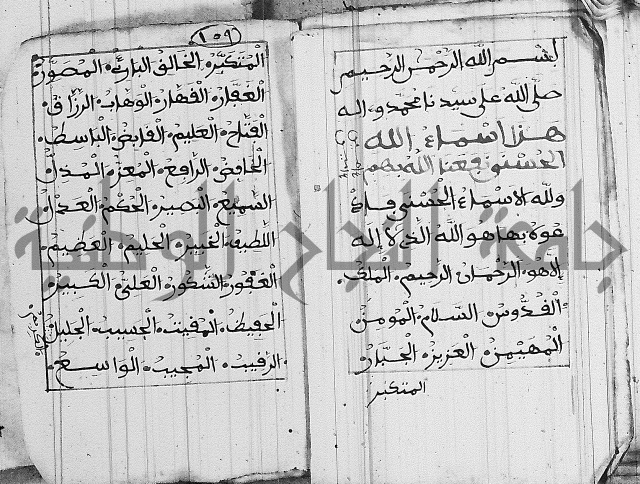 بسم الله الرحمن الرحيم
صلى الله على سيدنا محمد و اله
هذا اسماء الله
الحسنى نفعنا الله بهم
ولله الاسماء الحسنى فاد
عوه بها هو الله الذى لا إله
إلا هو الرحمان الرحيم الملك
القدوس السلام المومن
المهيمن العزيز الجبار
المتكبر
١٥٩
المتكبر الخالق البارئ المصور
الغفار القهار الوهاب الرزاق
الفتاح العليم القابض الباسط
الخافض الرافع المعز المذل
السميع البصير الحكم العدل
اللطيف الخبير الحليم العظيم
الغفور الشكور العلي الكبير
الحفيظ المقيت الحسيب الجليل
الرقيب المجيب الواسع
جامعة النجاح الوطنية